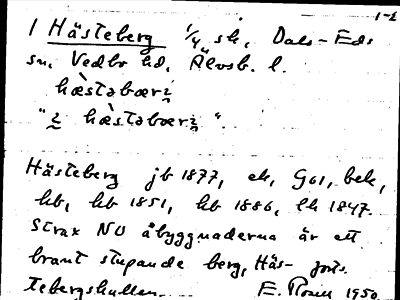 1-2
1 Hästeberg 1/4 sk, Dals-Eds
sn, Vedbo hd, Älvsb. l.
hæ̀stəbæri̯
"i̯ hæ̀stəbæri̯".
Hästeberg jb 1877, ek, G61, bek,
kb, hb 1851, hb 1886, lh 1847.
Strax NO åbyggnaderna är ett
brant stupande berg, Häs- forts.
tebergskullen. E. 1950